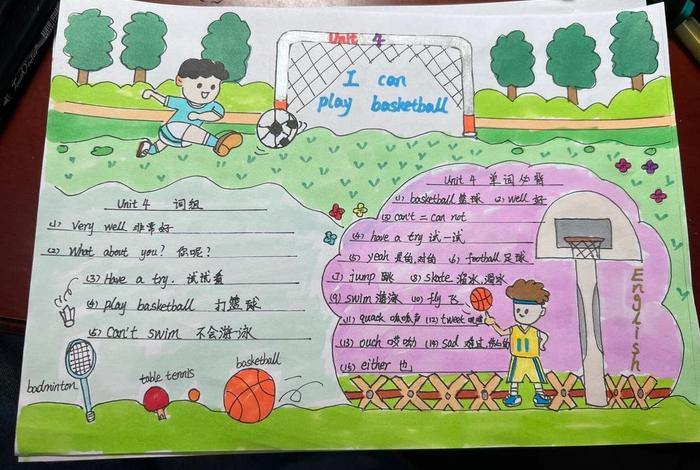 Unit 4
I can
play basketball
Unit 4 词组
(1) Very well 非常好
(2) What about you? 你呢?
(3) Have a try. 试试看
(4) play basketball 打篮球
(5) Can't swim 不会游泳
badminton
table tennis
basketball
Unit 4 单词必背
(1) basketball 篮球 (2) well 好
(3) can't = can not
(4) have a try 试一试
(5) yeah 是的,对的 (6) football 足球
(7) jump 跳 (8) skate 溜冰,滑冰
(9) swim 游泳 (10) fly 飞
(11) quack 呱呱声 (12) tweet
(13) ouch 哎哟 (14) sad 难过
(15) either 也
11
English